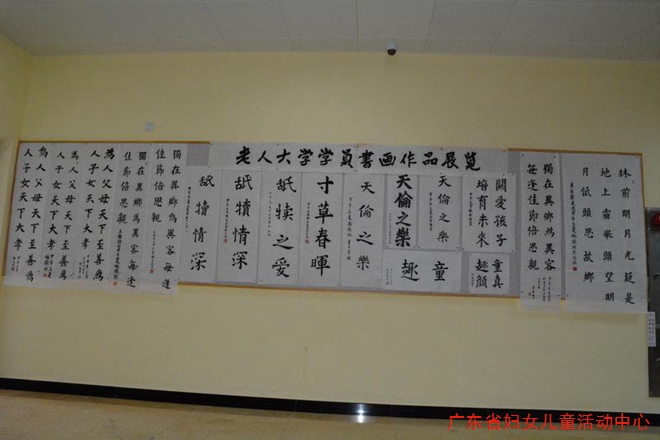 老人大学学員書画作品展览
牀前明月光疑是
地上霜舉頭望明
月低頭思故鄉
獨在異鄉為異客
每逢佳節倍思親
關愛孩子
培育未來
童真
趣顔
天倫之樂
天倫之樂
童趣
天倫之樂
寸草春暉
舐犢之愛
舐犢情深
舐犢情深
獨在異鄉為異客每逢
佳節倍思親
獨在異鄉為異客每逢
佳節倍思親
為人父母天下至善為
人子女天下大孝
為人父母天下至善為
人子女天下大孝
為人父母天下至善為
人子女天下大孝
广东省妇女儿童活动中心